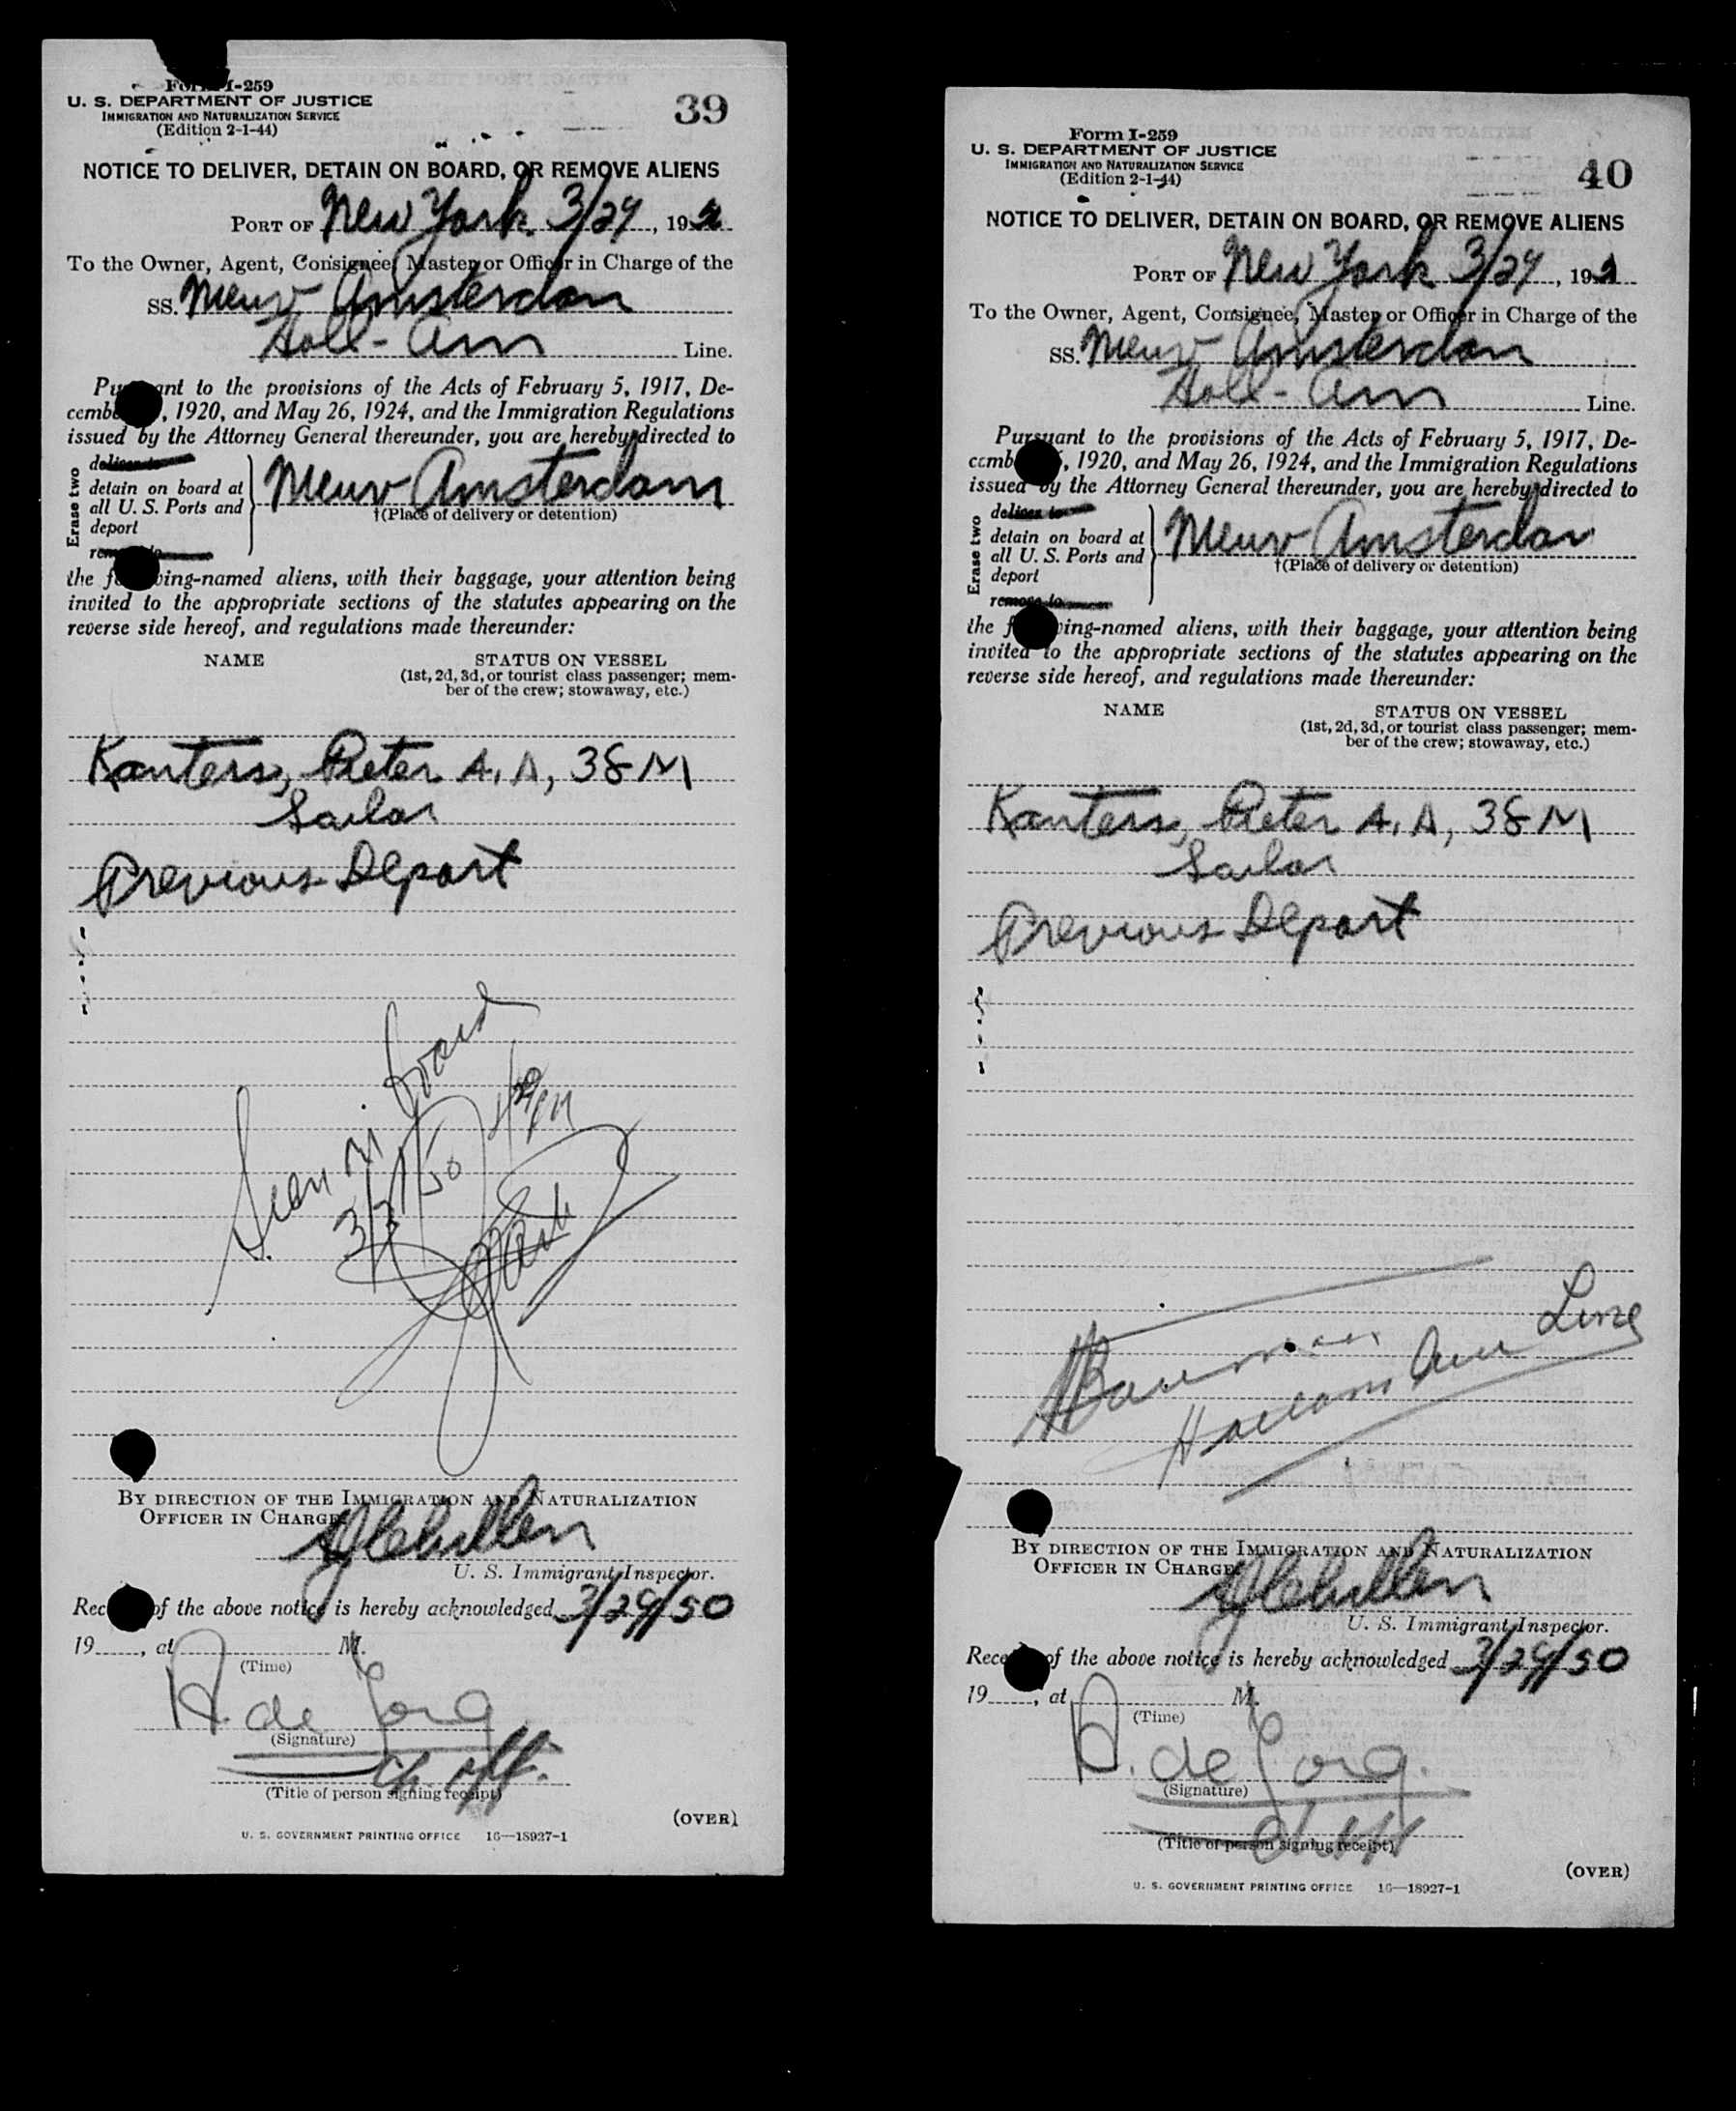 Form I-259
U. S. DEPARTMENT OF JUSTICE
IMMIGRATION AND NATURALIZATION SERVICE
(Edition 2-1-44)
39
NOTICE TO DELIVER, DETAIN ON BOARD, OR REMOVE ALIENS
PORT OF New York 3/29, 19
To the Owner, Agent, Consignee, Master or Officer in Charge of the
SS. Nieuw Amsterdam
Holl-Am Line.
Pursuant to the provisions of the Acts of February 5, 1917, De-
cemb , 1920, and May 26, 1924, and the Immigration Regulations
issued by the Attorney General thereunder, you are hereby directed to
Erase two
deliver to
detain on board at
all U. S. Ports and
deport
remove to
Nieuw Amsterdam
†(Place of delivery or detention)
the following-named aliens, with their baggage, your attention being
invited to the appropriate sections of the statutes appearing on the
reverse side hereof, and regulations made thereunder:
NAME STATUS ON VESSEL
(1st, 2d, 3d, or tourist class passenger; mem-
ber of the crew; stowaway, etc.)
Kanters, Pieter A. A, 38 M
Sailor
Previous Deport
Seen on board
3/31/50
BY DIRECTION OF THE IMMIGRATION AND NATURALIZATION
OFFICER IN CHARGE
U. S. Immigrant Inspector.
Receipt of the above notice is hereby acknowledged 3/29/50
19 , at M.
(Time)
A. de Jong
(Signature)
Ch. off.
(Title of person signing receipt)
(OVER)
U. S. GOVERNMENT PRINTING OFFICE 16—18927-1
Form I-259
U. S. DEPARTMENT OF JUSTICE
IMMIGRATION AND NATURALIZATION SERVICE
(Edition 2-1-44)
40
NOTICE TO DELIVER, DETAIN ON BOARD, OR REMOVE ALIENS
PORT OF New York 3/29, 19
To the Owner, Agent, Consignee, Master or Officer in Charge of the
SS. Nieuw Amsterdam
Holl-Am Line.
Pursuant to the provisions of the Acts of February 5, 1917, De-
cemb , 1920, and May 26, 1924, and the Immigration Regulations
issued by the Attorney General thereunder, you are hereby directed to
Erase two
deliver to
detain on board at
all U. S. Ports and
deport
remove to
Nieuw Amsterdam
†(Place of delivery or detention)
the following-named aliens, with their baggage, your attention being
invited to the appropriate sections of the statutes appearing on the
reverse side hereof, and regulations made thereunder:
NAME STATUS ON VESSEL
(1st, 2d, 3d, or tourist class passenger; mem-
ber of the crew; stowaway, etc.)
Kanters, Pieter A. A, 38 M
Sailor
Previous Deport
Holland Am Line
BY DIRECTION OF THE IMMIGRATION AND NATURALIZATION
OFFICER IN CHARGE
U. S. Immigrant Inspector.
Receipt of the above notice is hereby acknowledged 3/29/50
19 , at M.
(Time)
A. de Jong.
(Signature)
Ch. off
(Title of person signing receipt)
(OVER)
U. S. GOVERNMENT PRINTING OFFICE 16—18927-1